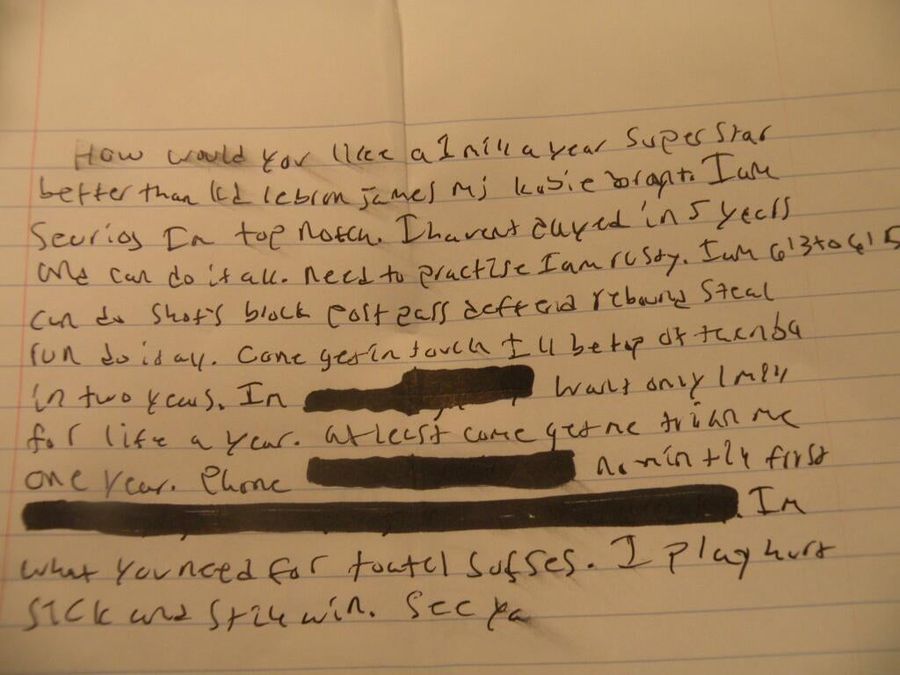 How would you like a 1 mill a year Super Star
better than kd lebron james mj kobie I am
Seurios Im top notch. I havent played in 5 years
and can do it all. need to practise I am rusty. I am 6'13 to 6'15
can do shots block post pass deffend rebound steal
run do it all. Come get in touch I ll be top of the nba
in two years. Im want only 1 mill
for life a year. at least come get me me
one year. Phone first
Im
what you need for toatel sufses. I play hurt
sick and still win. See ya